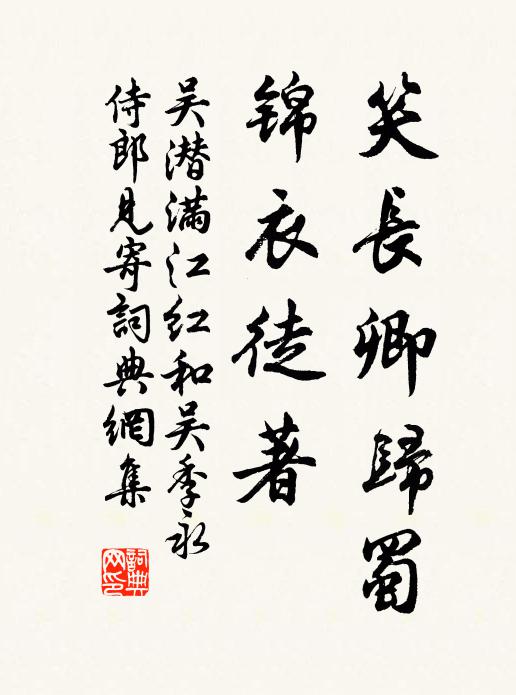 笑長卿歸蜀
錦衣徒著
吴潜滿江红和吴季永
侍郎見寄詞典網集
詞典网印